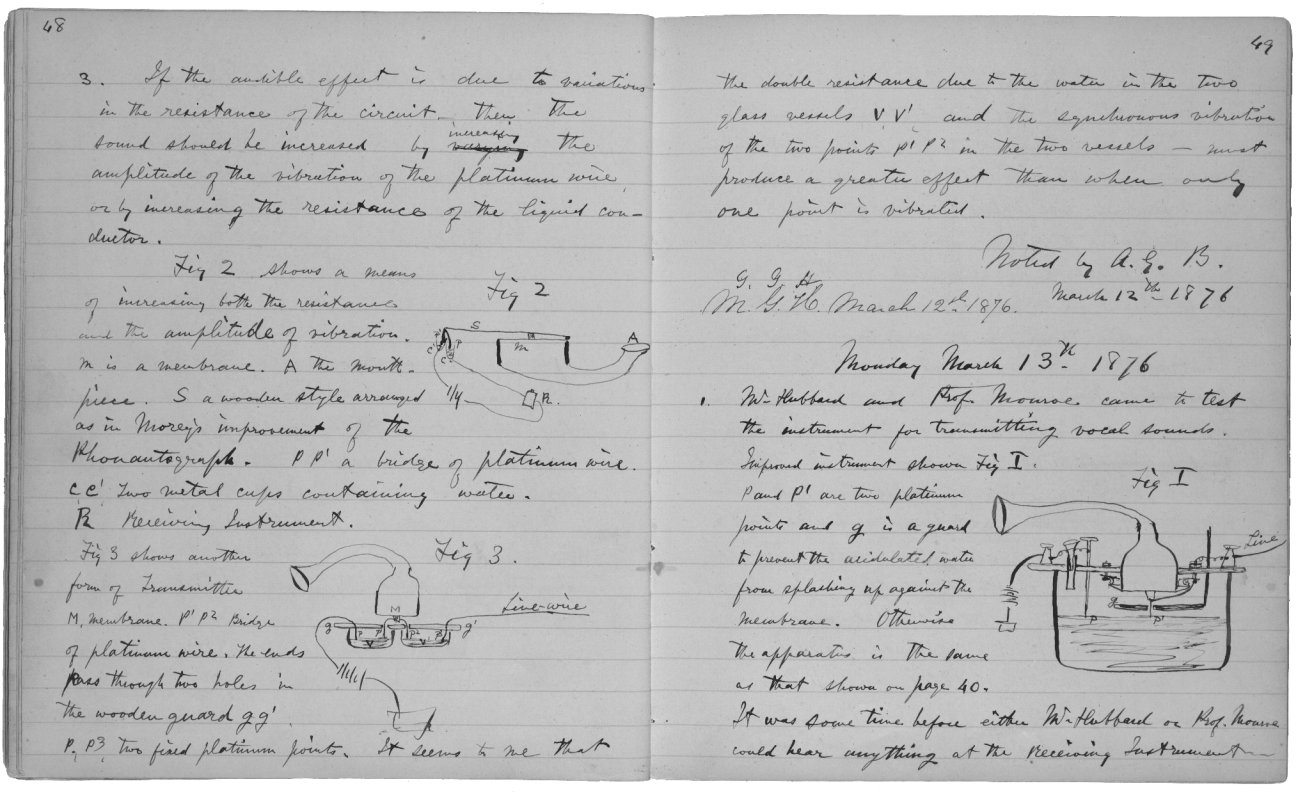 48
3. If the audible effect is due to variations
in the resistance of the circuit – then the
sound should be increased by increasing the
amplitude of the vibration of the platinum wire,
or by increasing the resistance of the liquid con-
ductor.
Fig 2 shows a means
of increasing both the resistance
and the amplitude of vibration.
m is a membrane. A the mouth-
piece. S a wooden style arranged
as in Morey's improvement of the
Phonautograph. P P' a bridge of platinum wire.
c c' Two metal cups containing water.
R Receiving Instrument.
Fig 2
S
m
A
c'
P
c
R.
Fig 3 shows another
form of Transmitter
M, membrane. P' P2 Bridge
of platinum wire. The ends
pass through two holes in
the wooden guard g g'
P, P3, two fixed platinum points. It seems to me that
Fig 3.
Line-wire
M
g
g'
P
P'
P2
V
V'
49
the double resistance due to the water in the two
glass vessels V V' and the synchronous vibration
of the two points P' P2 in the two vessels – must
produce a greater effect than when only
one point is vibrated.
Noted by A. G. B.
March 12th 1876
G. G. H
M. G. H. March 12th 1876.
Monday March 13th 1876
1. Mr Hubbard and Prof. Monroe came to test
the instrument for transmitting vocal sounds.
Improved instrument shown Fig I.
P and P' are two platinum
points and g is a guard
to prevent the acidulated water
from splashing up against the
membrane. Otherwise
the apparatus is the same
as that shown on page 40.
Fig I
Line
g
P
P'
It was some time before either Mr Hubbard or Prof. Monroe
could hear anything at the Receiving Instrument –